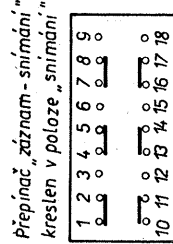 Přepínač „záznam - snímání"
kreslen v poloze „snímání"
1 2 3 4 5 6 7 8 9
10 11 12 13 14 15 16 17 18